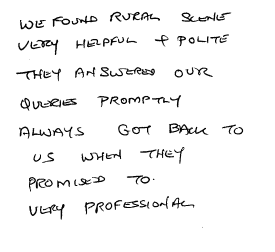 WE FOUND RURAL SCENE
VERY HELPFUL + POLITE
THEY ANSWERED OUR
QUERIES PROMPTLY
ALWAYS GOT BACK TO
US WHEN THEY
PROMISED TO.
VERY PROFESSIONAL